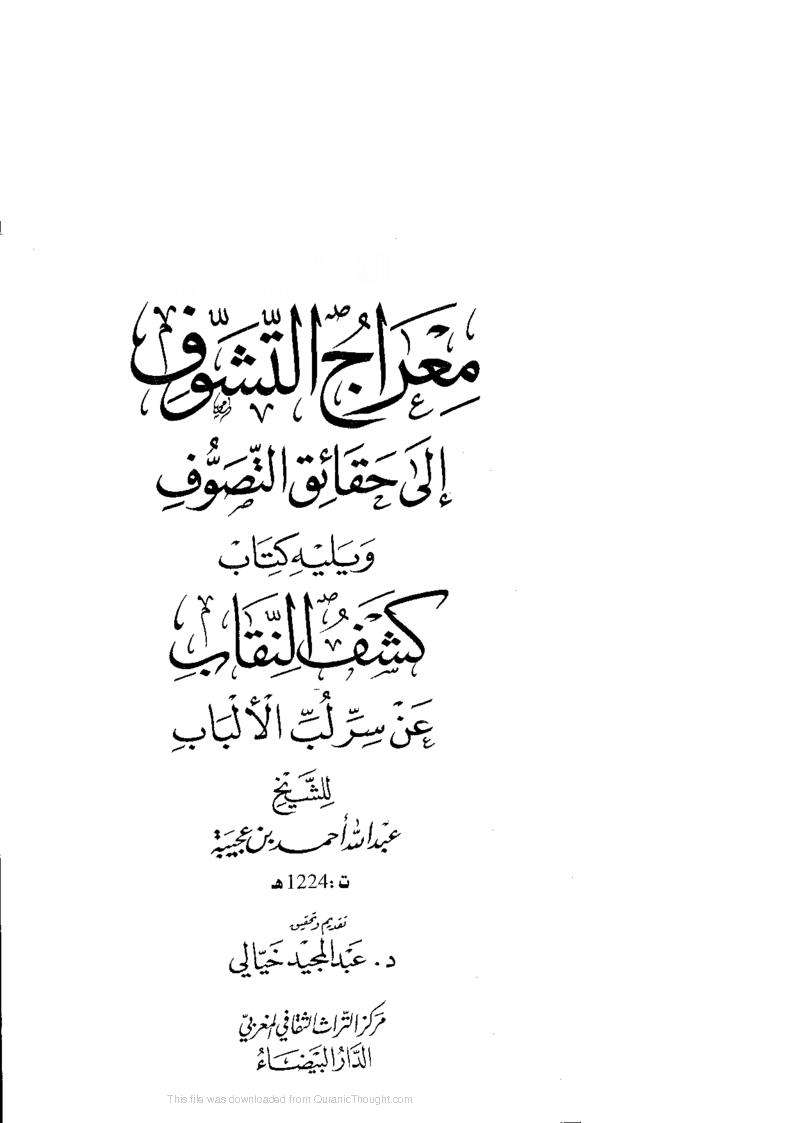 مِعْرَاجُ التَّشَوُّفِ
إِلَىٰ حَقَائِقِ التَّصَوُّفِ
وَيَلِيْهِ كِتَابْ
كَشْفُ النِّقَابِ
عَنْ سِرِّ لُبِّ الْأَلْبَابِ
لِلشَّيْخِ
عبْدالله أحمد بن عجيبَة
ت : 1224هـ
تقديم وتحقيق
د. عَبْدالمجيْد خَيَالي
مَركز التّراث الثقافي المغربيّ
الدَّارُ البَيضَاءُ
This file was downloaded from QuranicThought.com